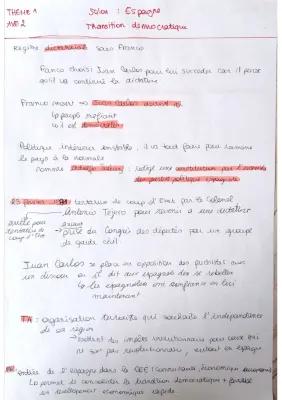 THEME 1
AXE 2
Jalon : Espagne
Transition démocratique
Régime dictatorial sous Franco
Franco choisi Juan Carlos pour lui succéder car il pense
qu'il va continuer la dictature
Franco meurt → Juan Carlos devient roi
↳ peuple méfiant
↳ il est démocrate
Politique intérieure instable, il va tout faire pour ramener
le pays à la normale
nomme Adolfo Suárez : rédige une constitution par l'ensemble
des partis politique espagnole
23 février 1981 : tentative de coup d'Etat par le Colonel
Antonio Tejero pour revenir à une dictature
arrêté pour
tentative de
coup d'Etat
→ prise du Congrès des députés par un groupe
de garde civil
Juan Carlos se place en opposition des putchistes avec
un discours où il dit aux espagnols de se rebeller
↳ les espagnoles ont confiance en lui
maintenant
ETA : organisation terroriste qui souhaite l'indépendance
de sa région
→ mettent des impôts révolutionnaires pour ceux qui
ne sont pas révolutionnaires, surtout en espagne
entrée de l'espagne dans la CEE (Communauté économique européenne)
↳ permet de consolider la transition démocratique +
un développement économique rapide